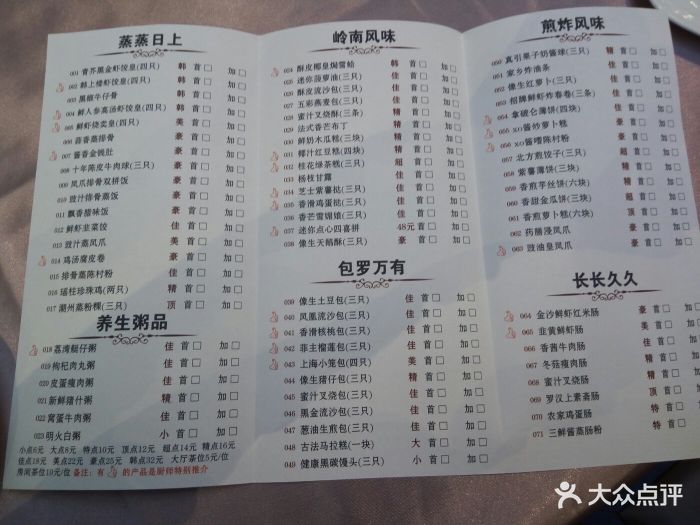 蒸蒸日上
001 青芥黑金虾饺皇(四只) 韩 首□ 加□
002 韩上楼虾饺皇(四只) 韩 首□ 加□
003 黑椒牛仔骨 韩 首□ 加□
004 鲜人参高汤虾饺皇(四只) 韩 首□ 加□
005 鲜虾烧卖皇(四只) 美 首□ 加□
006 蒜香蒸排骨 豪 首□ 加□
007 酱香金钱肚 豪 首□ 加□
008 十年陈皮牛肉球(三只) 豪 首□ 加□
009 凤爪排骨双拼饭 豪 首□ 加□
010 豉汁排骨蒸饭 豪 首□ 加□
011 飘香腊味饭 豪 首□ 加□
012 鲜虾韭菜饺 佳 首□ 加□
013 豉汁蒸凤爪 美 首□ 加□
014 鸡汤腐皮卷 豪 首□ 加□
015 排骨蒸陈村粉 佳 首□ 加□
016 瑶柱珍珠鸡(两只) 精 首□ 加□
017 潮州蒸粉粿(三只) 顶 首□ 加□
养生粥品
018 荔湾艇仔粥 佳 首□ 加□
019 枸杞肉丸粥 佳 首□ 加□
020 皮蛋瘦肉粥 佳 首□ 加□
021 新鲜猪什粥 精 首□ 加□
022 窝蛋牛肉粥 佳 首□ 加□
023 明火白粥 小 首□ 加□
小点6元 大点8元 特点10元 顶点12元 超点14元 精点16元
佳点18元 美点22元 豪点25元 韩点32元 大厅茶位5元/位
房间茶位10元/位 备注:有 的产品是厨师特别推介
岭南风味
024 酥皮椰皇焗雪蛤 韩 首□ 加□
025 迷你菠萝油(三只) 佳 首□ 加□
026 酥皮流沙包(三只) 佳 首□ 加□
027 五彩燕麦包(三只) 佳 首□ 加□
028 蜜汁叉烧酥(三条) 精 首□ 加□
029 法式香芒布丁 精 首□ 加□
030 鲜奶木瓜糕(三块) 精 首□ 加□
031 椰汁红豆糕(四块) 精 首□ 加□
032 桂花绿茶糕(三块) 超 首□ 加□
033 杨枝甘露 佳 首□ 加□
034 芝士紫薯挞(三只) 佳 首□ 加□
035 香滑鸡蛋挞(三只) 佳 首□ 加□
036 香芒雷媚娘(三只) 佳 首□ 加□
037 迷你点心四喜拼 48元 首□ 加□
038 像生天鹅酥(三只) 豪 首□ 加□
包罗万有
039 像生土豆包(三只) 佳 首□ 加□
040 凤凰流沙包(三只) 佳 首□ 加□
041 香滑核桃包(三只) 佳 首□ 加□
042 菲主榴莲包(三只) 佳 首□ 加□
043 上海小笼包(四只) 美 首□ 加□
044 像生猪仔包(三只) 精 首□ 加□
045 蜜汁叉烧包(三只) 佳 首□ 加□
046 黑金流沙包(三只) 佳 首□ 加□
047 葱油生煎包(三只) 佳 首□ 加□
048 古法马拉糕(一块) 大 首□ 加□
049 健康黑碳馒头(三只) 小 首□ 加□
煎炸风味
050 真引果子奶酱球(三只) 精 首□ 加□
051 家乡炸油条 佳 首□
052 像生红萝卜(三只) 佳 首□
053 招牌鲜虾炸春卷(三条) 佳 首□
054 拿破仑薄饼(四块) 佳 首□
055 xo酱炒萝卜糕 豪 首□
056 xo酱嘈陈村粉 豪 首□
057 北方煎饺子(三只) 超 首□
058 紫薯薄饼(三块) 精 首□
059 香煎芋丝饼(六块) 精 首□
060 香甜金瓜饼(三块) 超 首□
061 香煎萝卜糕(六块) 顶 首□
062 药膳浸凤爪 豪 首□
063 豉油皇凤爪 豪 首□
长长久久
064 金沙鲜虾红米肠 豪 首□
065 韭黄鲜虾肠 美 首□
066 香茜牛肉肠 佳 首□
067 冬菇瘦肉肠 精 首□
068 蜜汁叉烧肠 精 首□
069 罗汉上素斋肠 顶 首□
070 农家鸡蛋肠 特 首□
071 三鲜酱蒸肠粉 特 首□
大众点评